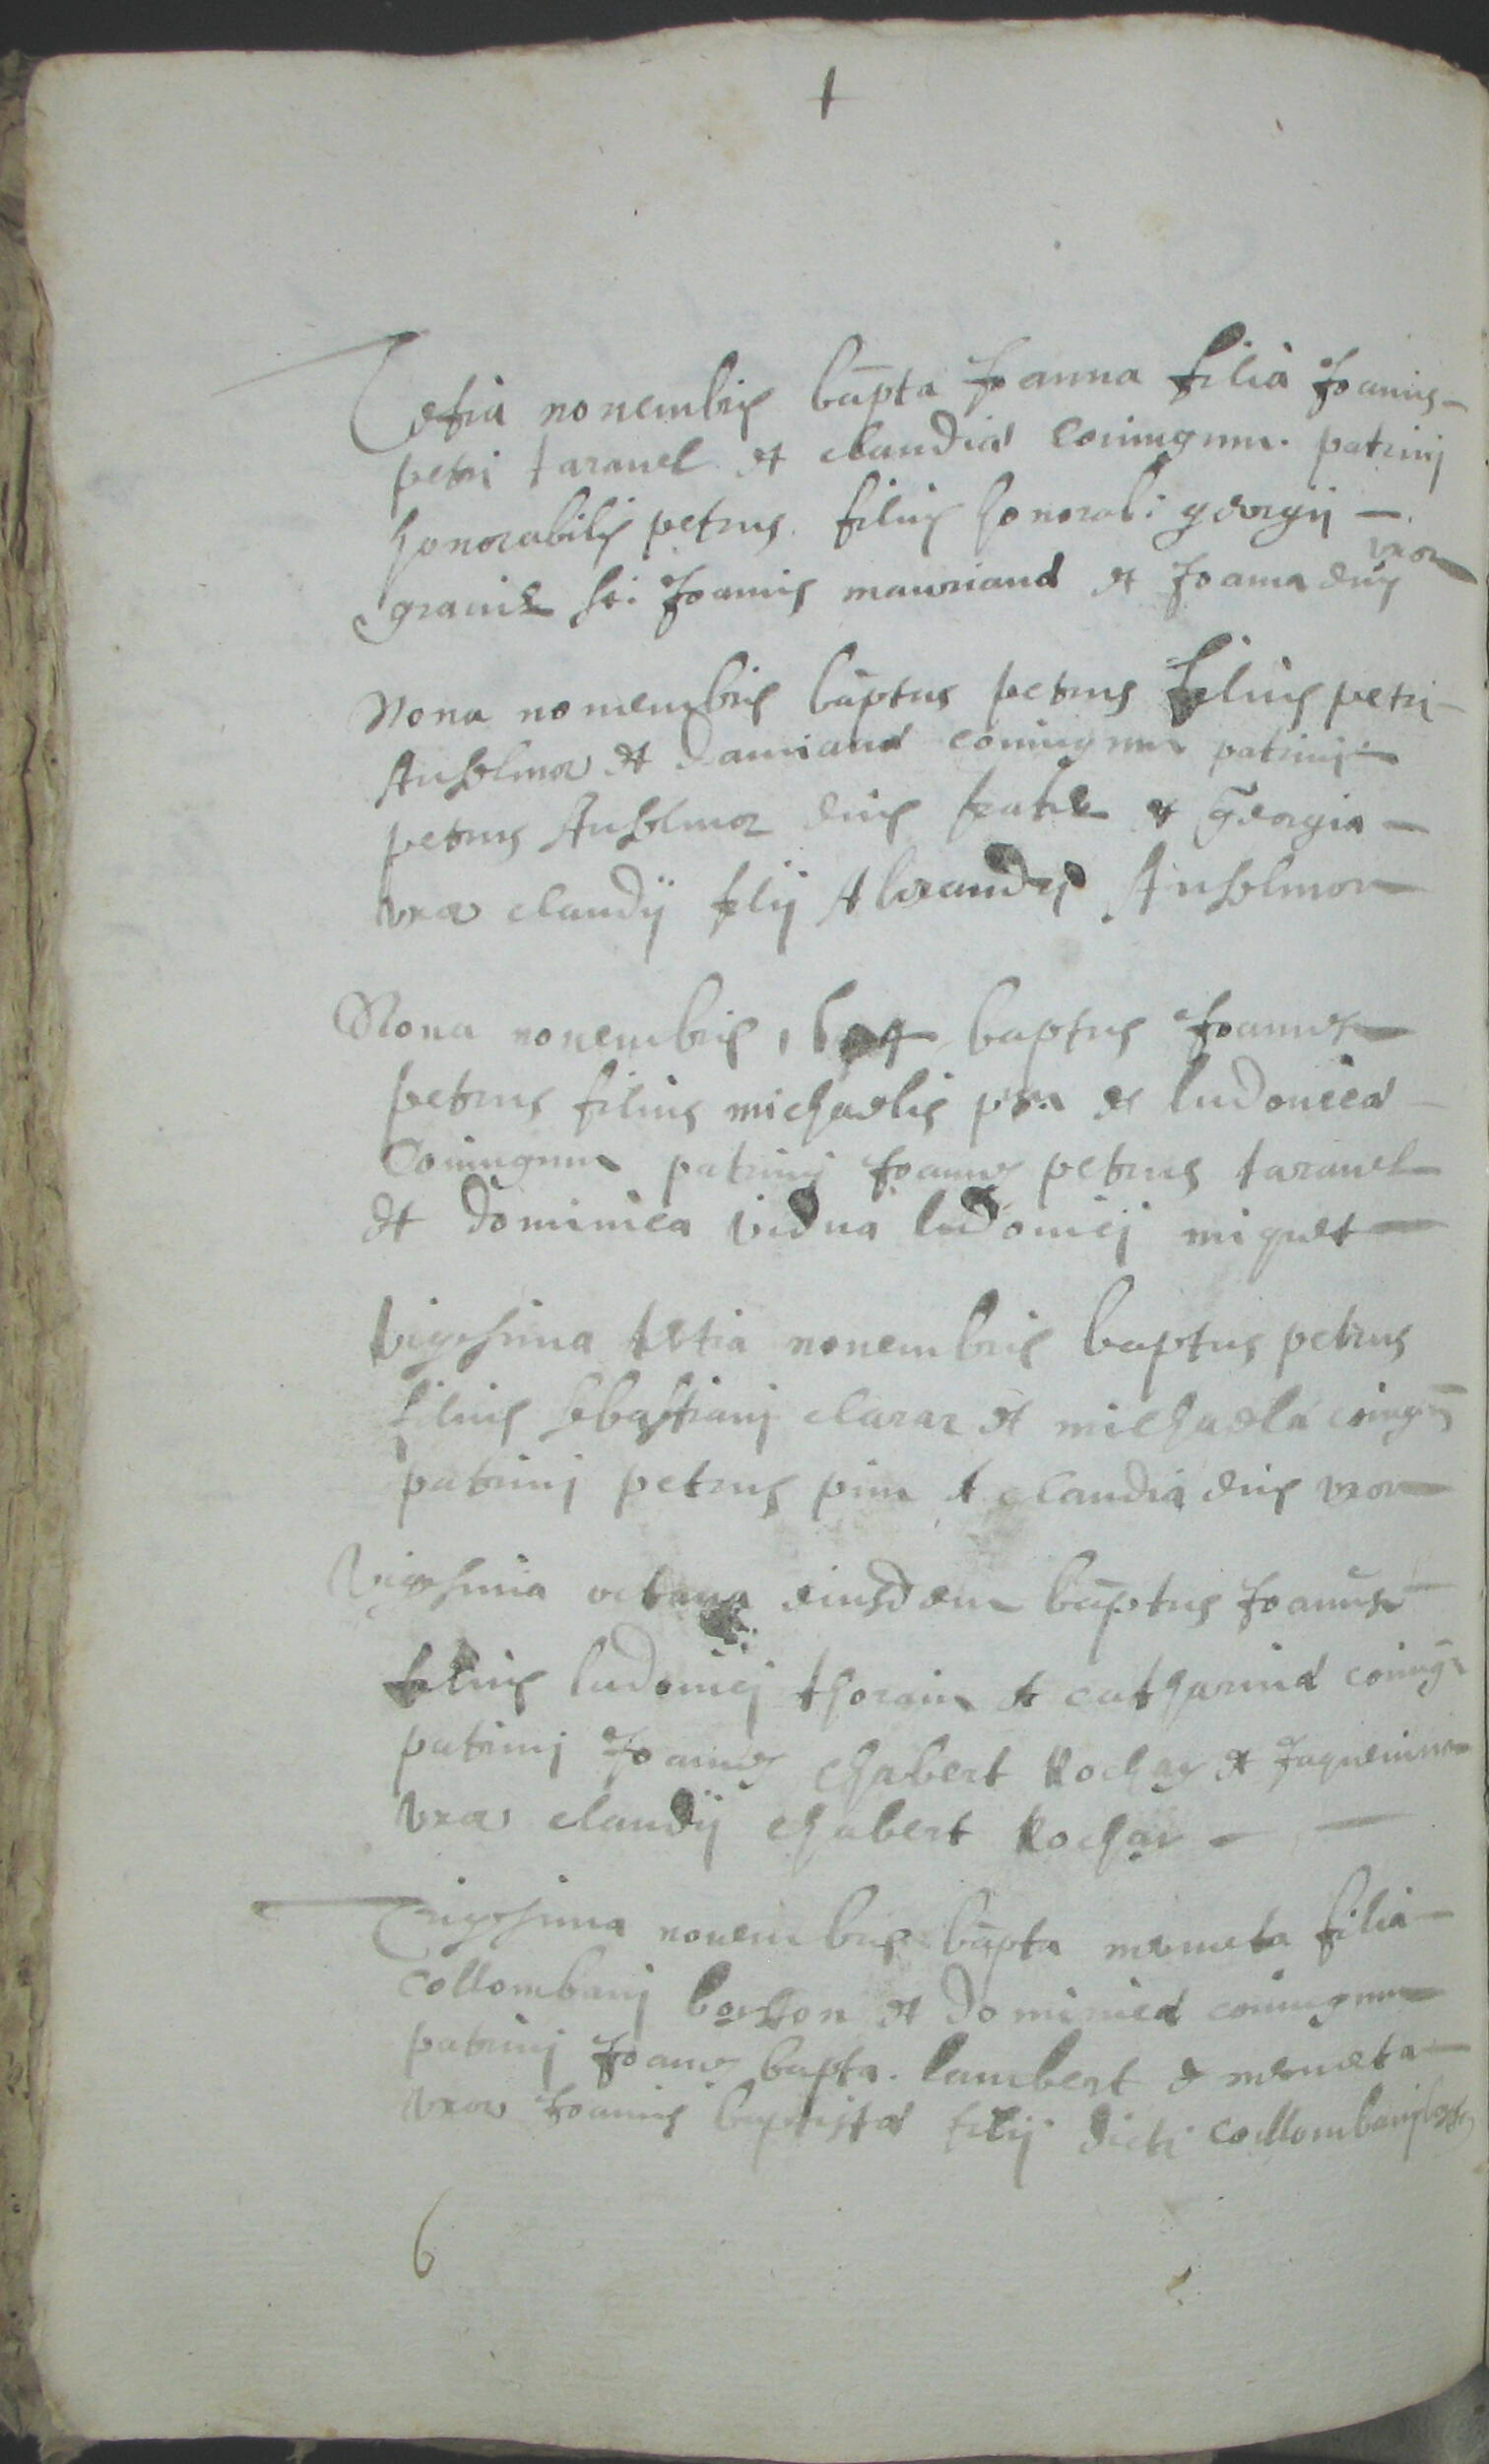 Tertia novembris bapta Joanna filia Joanis
petri taravel et claudiae coniugum. patrini
honorabilis petrus filius honorab: georgii
uxor
gravier sti. Joannis mauriand et Joanna eius
Nona novembris baptus petrus filius petri
Anselmoz et damianae coniugum patrini
petrus Anselmoz eius frater et georgia
uxor claudij filij Alexandrj Anselmoz
Nona novembris baptus Joannes
petrus filius michaelis et ludovicae
Coniugum patrinj Joannes petrus taravel
et dominica vidua ludovicj miquet
Vigesima tertia novembris baptus petrus
filius sebastianj claraz et michaelae coniugum
patrinj petrus et claudia eius uxor
Vigesima octava eiusdem baptus Joannes
filius ludovicj thorain et catharinae coniug
patrinj Joannes chabert Rochas et Jaquemina
uxor claudij chabert Rochas
Trigesima novembris bapta meneta filia
collombanj bosson et dominicae coniugum
patrinj Joannes bapta. lambert et meneta
uxor Joannis baptistae filij dicti collombanj bosson
6